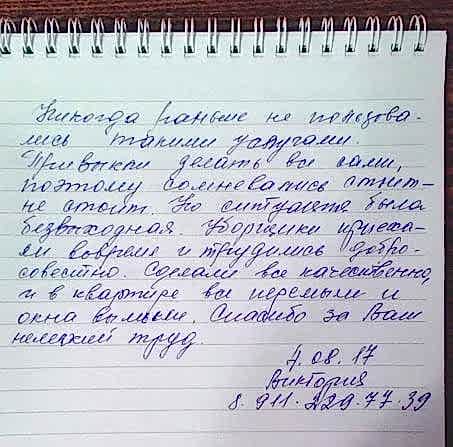 Никогда раньше не пользова-
лись такими услугами.
Привыкли делать все сами,
поэтому сомневались стоит-
не стоит. Но ситуация была
безвыходная. Уборщики приеха-
ли вовремя и трудились добро-
совестно. Сделали все качественно,
и в квартире все перемыли и
окна вымыли. Спасибо за Ваш
нелегкий труд.
7.08.17
Виктория
8.911.229.77.39